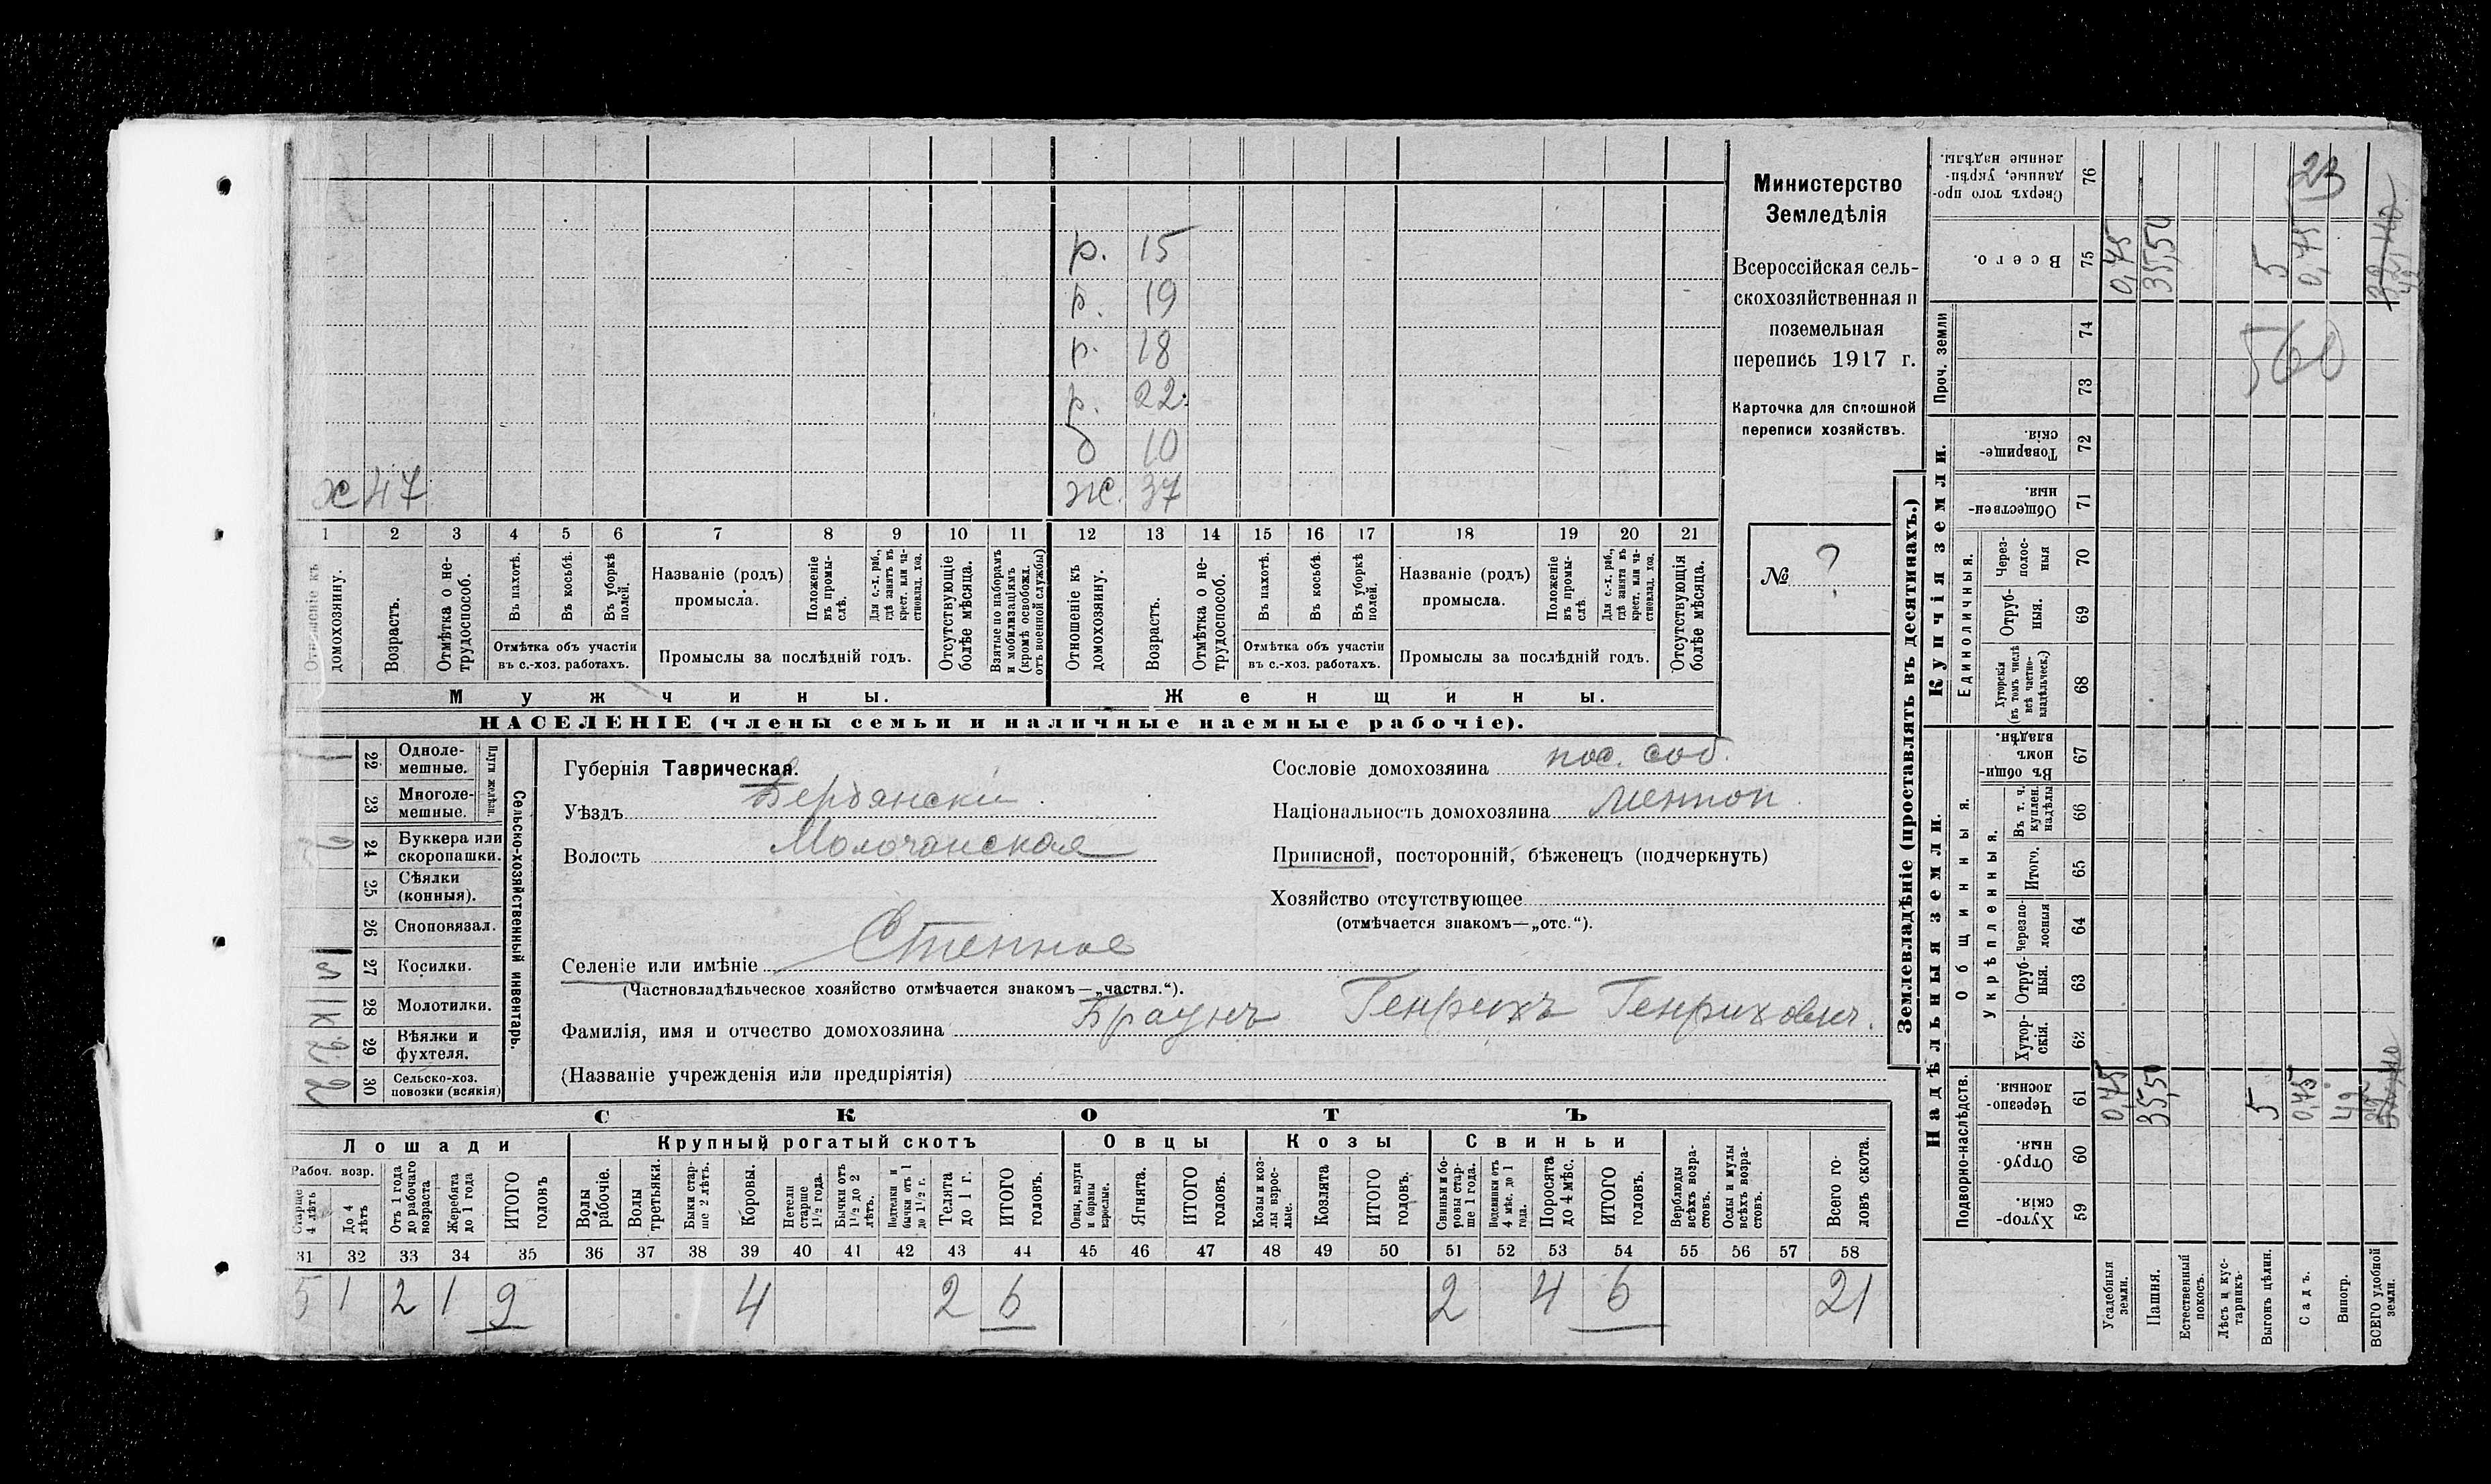 р. 15
р. 19
р. 18
р. 22.
б 10
х 47 ж. 37
1 2 3 4 5 6 7 8 9 10 11 12 13 14 15 16 17 18 19 20 21
Отношеніе къ домохозяину.
Возрастъ.
Отмѣтка о не-трудоспособ.
Въ пахотѣ.
Въ косьбѣ.
Въ уборкѣ полей.
Названіе (родъ) промысла.
Положеніе въ промы-слѣ.
Для с.-х. раб., гдѣ занятъ въ крест. или ча-стновлад. хоз.
Отсутствующіе болѣе мѣсяца.
Взятые по наборамъ и мобилизаціямъ (кромѣ освобожд. отъ военной службы)
Отношеніе къ домохозяину.
Возрастъ.
Отмѣтка о не-трудоспособ.
Въ пахотѣ.
Въ косьбѣ.
Въ уборкѣ полей.
Названіе (родъ) промысла.
Положеніе въ промы-слѣ.
Для с.-х. раб., гдѣ занята въ крест. или ча-стновлад. хоз.
Отсутствующія болѣе мѣсяца.
Отмѣтка объ участіи въ с.-хоз. работахъ.
Промыслы за послѣдній годъ.
Отмѣтка объ участіи въ с.-хоз. работахъ.
Промыслы за послѣдній годъ.
Мужчины. Женщины.
НАСЕЛЕНІЕ (члены семьи и наличные наемные рабочіе).
Министерство
Земледѣлія
Всероссійская сель-
скохозяйственная и
поземельная
перепись 1917 г.
Карточка для сплошной
переписи хозяйствъ.
№ ?
Сельско-хозяйственный инвентарь.
Плуги желѣзн.
22 Одноле-мешные. 1
23 Многоле-мешные.
24 Буккера или скоропашки.
25 Сѣялки (конныя).
26 Сноповязал.
27 Косилки.
28 Молотилки.
29 Вѣялки и фухтеля.
30 Сельско-хоз. повозки (всякія)
Губернія Таврическая.
Уѣздъ Бердянскій
Волость Молочанская
Сословіе домохозяина пос. соб.
Національность домохозяина менон.
Приписной, посторонній, бѣженецъ (подчеркнуть)
Хозяйство отсутствующее
(отмѣчается знакомъ—„отс.“).
Селеніе или имѣніе Степное
(Частновладѣльческое хозяйство отмѣчается знакомъ—„частвл.“).
Фамилія, имя и отчество домохозяина Браунъ Генрихъ Генрихович.
(Названіе учрежденія или предпріятія)
СКОТЪ
Лошади Крупный рогатый скотъ Овцы Козы Свиньи
Рабоч. возр.
Старше 4 лѣтъ
До 4 лѣтъ
Отъ 1 года до рабочаго возраста
Жеребята до 1 года
ИТОГО головъ
Волы рабочіе.
Волы третьяки.
Быки стар-ше 2 лѣтъ.
Коровы.
Нетели старше 1½ года.
Бычки отъ 1½ до 2 лѣтъ.
Подтелки и бычки отъ 1 до 1½ г.
Телята до 1 г.
ИТОГО головъ.
Овцы, валухи и бараны взрослые.
Ягнята.
ИТОГО головъ.
Козы и коз-лы взрос-лые.
Козлята
ИТОГО головъ.
Свиньи и бо-ровы стар-ше 1 года.
Подсвинки отъ 4 мѣс. до 1 года.
Поросята до 4 мѣс.
ИТОГО головъ.
Верблюды всѣхъ возра-стовъ.
Ослы и мулы всѣхъ возра-стовъ.
Всего го-ловъ скота.
31 32 33 34 35 36 37 38 39 40 41 42 43 44 45 46 47 48 49 50 51 52 53 54 55 56 57 58
5 1 2 1 9 4 2 6 2 4 6 21
Землевладѣніе (проставлять въ десятинахъ.)
Надѣльныя земли. Купчія земли. Проч. земли
Подворно-наслѣдств.
Общинныя.
Укрѣпленныя.
Единоличныя.
Хутор-скія. 59
Отруб-ныя. 60
Черезпо-лосныя. 61
Хутор-скія. 62
Отруб-ныя. 63
Черезпо-лосныя 64
Итого. 65
Въ т. ч. куплен. надѣлы 66
Въ общи-номъ владѣн. 67
Хуторскія (въ томъ числѣ всѣ частно-владѣльческ.) 68
Отруб-ныя. 69
Через-полос-ныя 70
Обществен-ныя. 71
Товарище-скія. 72
73
74
Всего. 75
Сверхъ того про-данные, укрѣп-ленные надѣлы. 76
Усадебныя земли. 0,45 0,45
Пашня. 35,50 35,50
Естественный покосъ.
Лѣсъ и кус-тарникъ.
Выгонъ цѣлин. 5 5
Садъ. 0,45 0,45
Виногр.
ВСЕГО удобной земли.
560
23